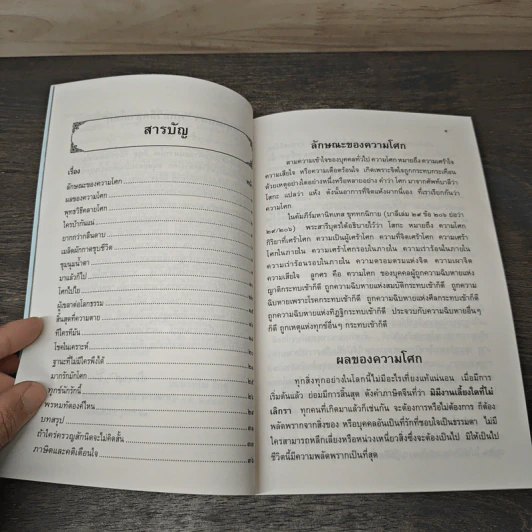 สารบัญ
เรื่อง
ลักษณะของความโศก
ผลของความโศก
พุทธวิธีคลายโศก
ใครบ้ากันแน่
ยากกว่ากลืนดาบ
เมล็ดผักกาดชุบชีวิต
ชุมนุมน้ำตา
มาแล้วก็ไป
โศกไปใย
ผู้เขลาต่อโลกธรรม
สิ้นสุดที่ความตาย
ที่ใครที่มัน
โชคในเคราะห์
ฐานะที่ไม่มีใครพึงได้
มากรักมักโศก
ทุกข์นักรักนี้
พรหมทัตองค์ไหน
บทสรุป
ถ้าใคร่ครวญสักนิดจะไม่คิดสั้น
ภาษิตและคติเตือนใจ
ลักษณะของความโศก
ตามความเข้าใจของบุคคลทั่วไป ความโศก หมายถึง ความเศร้าใจ
ความเสียใจ หรือความเดือดร้อนใจ เกิดเพราะจิตใจถูกกระทบกระเทือน
ด้วยเหตุอย่างใดอย่างหนึ่งหรือหลายอย่าง คำว่า โศก มาจากศัพท์บาลีว่า
โสกะ แปลว่า แห้ง ดังนั้นอาการที่จิตแห้งผากนี่เอง ที่เราเรียกกันว่า
ความโศก
ในคัมภีร์มหานิทเทส ขุททกนิกาย (บาลีเล่ม ๒๙ ข้อ ๒๐๖ ย่อว่า
๒๙/๒๐๖) พระสารีบุตรได้อธิบายไว้ว่า โสกะ หมายถึง ความโศก
กิริยาที่เศร้าโศก ความเป็นผู้เศร้าโศก ความที่จิตเศร้าโศก ความเศร้า
โศกในภายใน ความเศร้าโศกรอบในภายใน ความเร่าร้อนในภายใน
ความเร่าร้อนรอบในภายใน ความตรอมตรมแห่งจิต ความเผาจิต
ความเสียใจ ลูกศร คือ ความโศก ของบุคคลผู้ถูกความฉิบหายแห่ง
ญาติกระทบเข้าก็ดี ถูกความฉิบหายแห่งสมบัติกระทบเข้าก็ดี ถูกความ
ฉิบหายเพราะโรคกระทบเข้าก็ดี ถูกความฉิบหายแห่งศีลกระทบเข้าก็ดี
ถูกความฉิบหายแห่งทิฏฐิกระทบเข้าก็ดี ประจวบกับความฉิบหายอื่นๆ
ก็ดี ถูกเหตุแห่งทุกข์อื่นๆ กระทบเข้าก็ดี
ผลของความโศก
ทุกสิ่งทุกอย่างในโลกนี้ไม่มีอะไรเที่ยงแท้แน่นอน เมื่อมีการ
เริ่มต้นแล้ว ย่อมมีการสิ้นสุด ดังคำภาษิตจีนที่ว่า มิมีงานเลี้ยงใดที่ไม่
เลิกรา ทุกคนที่เกิดมาแล้วก็เช่นกัน จะต้องการหรือไม่ต้องการ ก็ต้อง
พลัดพรากจากสิ่งของ หรือบุคคลอันเป็นที่รักที่ชอบใจเป็นธรรมดา ไม่มี
ใครสามารถหลีกเลี่ยงหรือหน่วงเหนี่ยวสิ่งซึ่งจะต้องเป็นไป มิให้เป็นไป
ชีวิตนี้มีความพลัดพรากเป็นที่สุด